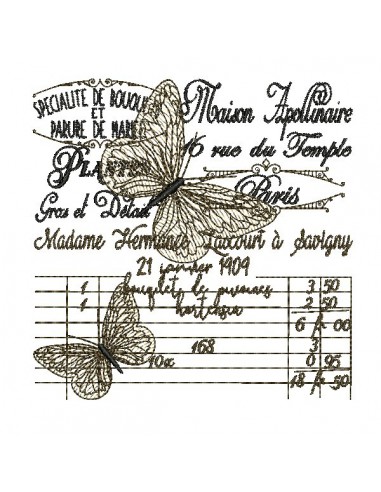 SPECIALITE DE BOUQUET
ET
PARURE DE MARIE
Maison Apollinaire
16 rue du Temple
PLANTES
Paris
Gros et Détail
Madame Hermance à Savigny
21 janvier 1909
1 bouquets de 3 50
1 hortensia 2 50
6 fr 00
168 3
10x 0 95
18 fr 50